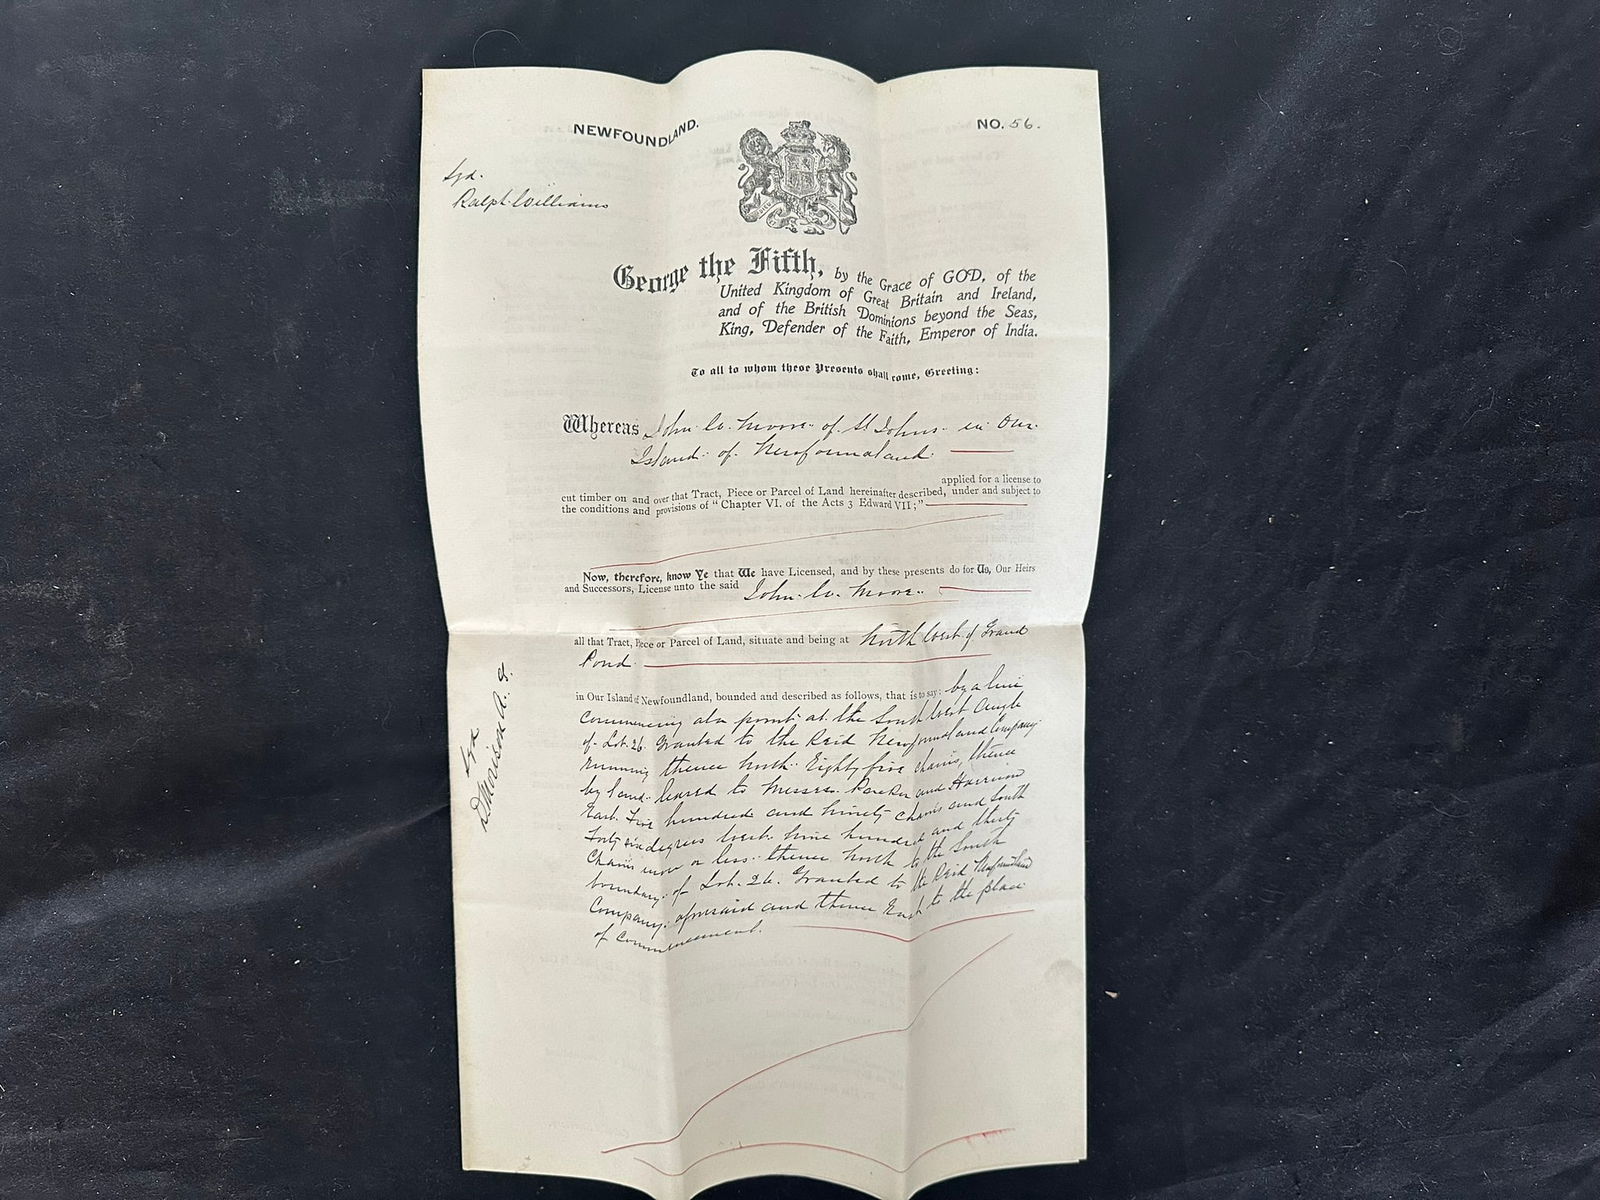 NEWFOUNDLAND.
NO. 56.
Sgd.
Ralph Williams
George the Fifth, by the Grace of GOD, of the
United Kingdom of Great Britain and Ireland,
and of the British Dominions beyond the Seas,
King, Defender of the Faith, Emperor of India.
To all to whom these Presents shall come, Greeting:
Whereas John W. Moore of St Johns in Our
Island of Newfoundland
applied for a license to
cut timber on and over that Tract, Piece or Parcel of Land hereinafter described, under and subject to
the conditions and provisions of "Chapter VI. of the Acts 3 Edward VII;"
Now, therefore, know Ye that We have Licensed, and by these presents do for Us, Our Heirs
and Successors, License unto the said John W. Moore
all that Tract, Piece or Parcel of Land, situate and being at North West of Grand
Pond
in Our Island of Newfoundland, bounded and described as follows, that is to say: by a line
commencing at a point at the South West Angle
of Lot 26 Granted to the Reid Newfoundland Company
running thence North Eighty five chains, thence
by land leased to Messrs. Parker and Harrison
East Five hundred and ninety chains and South
Forty six degrees West Nine hundred and thirty
Chains more or less thence North to the South
boundary of Lot 26 Granted to the Reid Newfoundland
Company aforesaid and thence East to the place
of Commencement.
Sgd
D. Morison A. G.